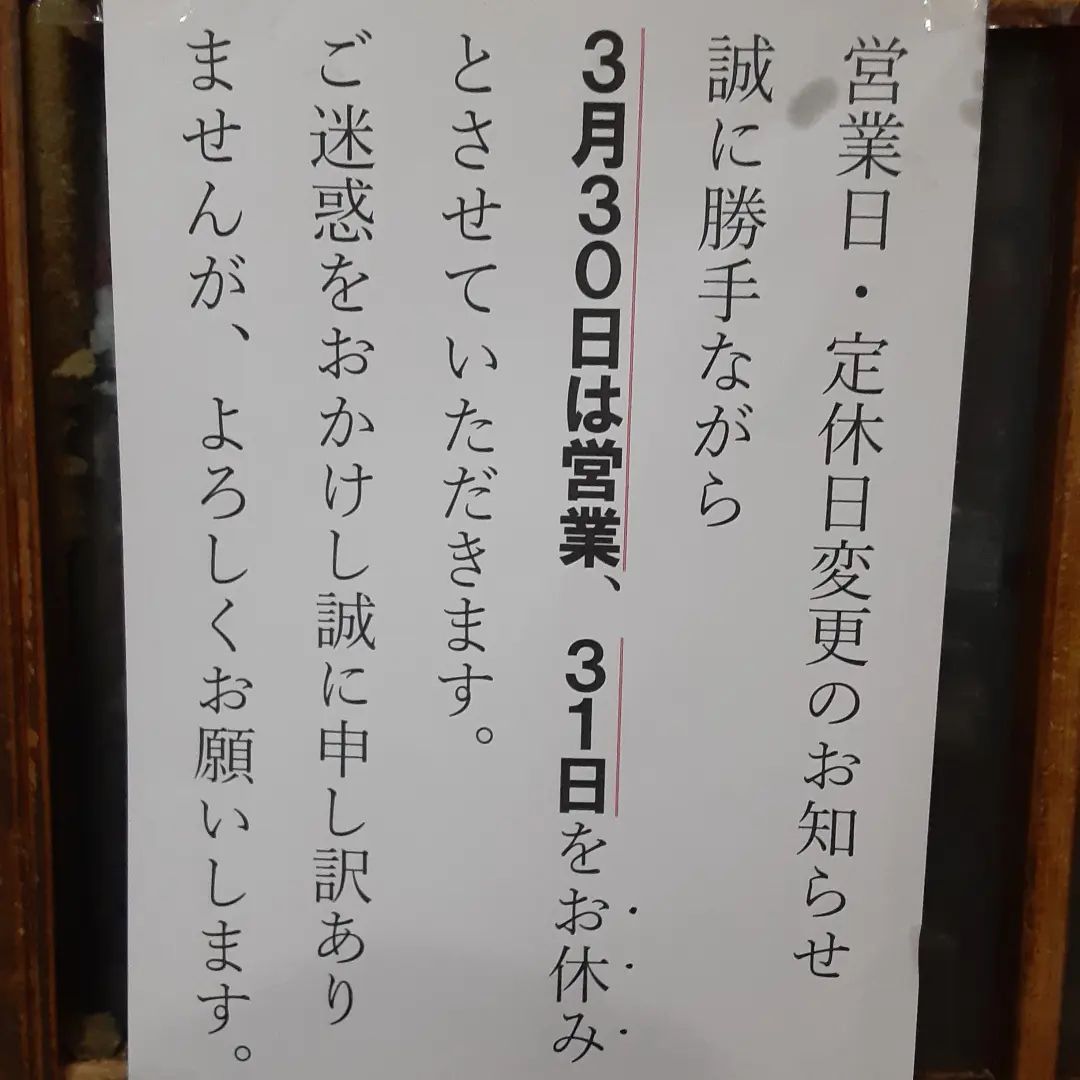 営業日・定休日変更のお知らせ
誠に勝手ながら
3月30日は営業、31日をお休み
とさせていただきます。
ご迷惑をおかけし誠に申し訳あり
ませんが、よろしくお願いします。